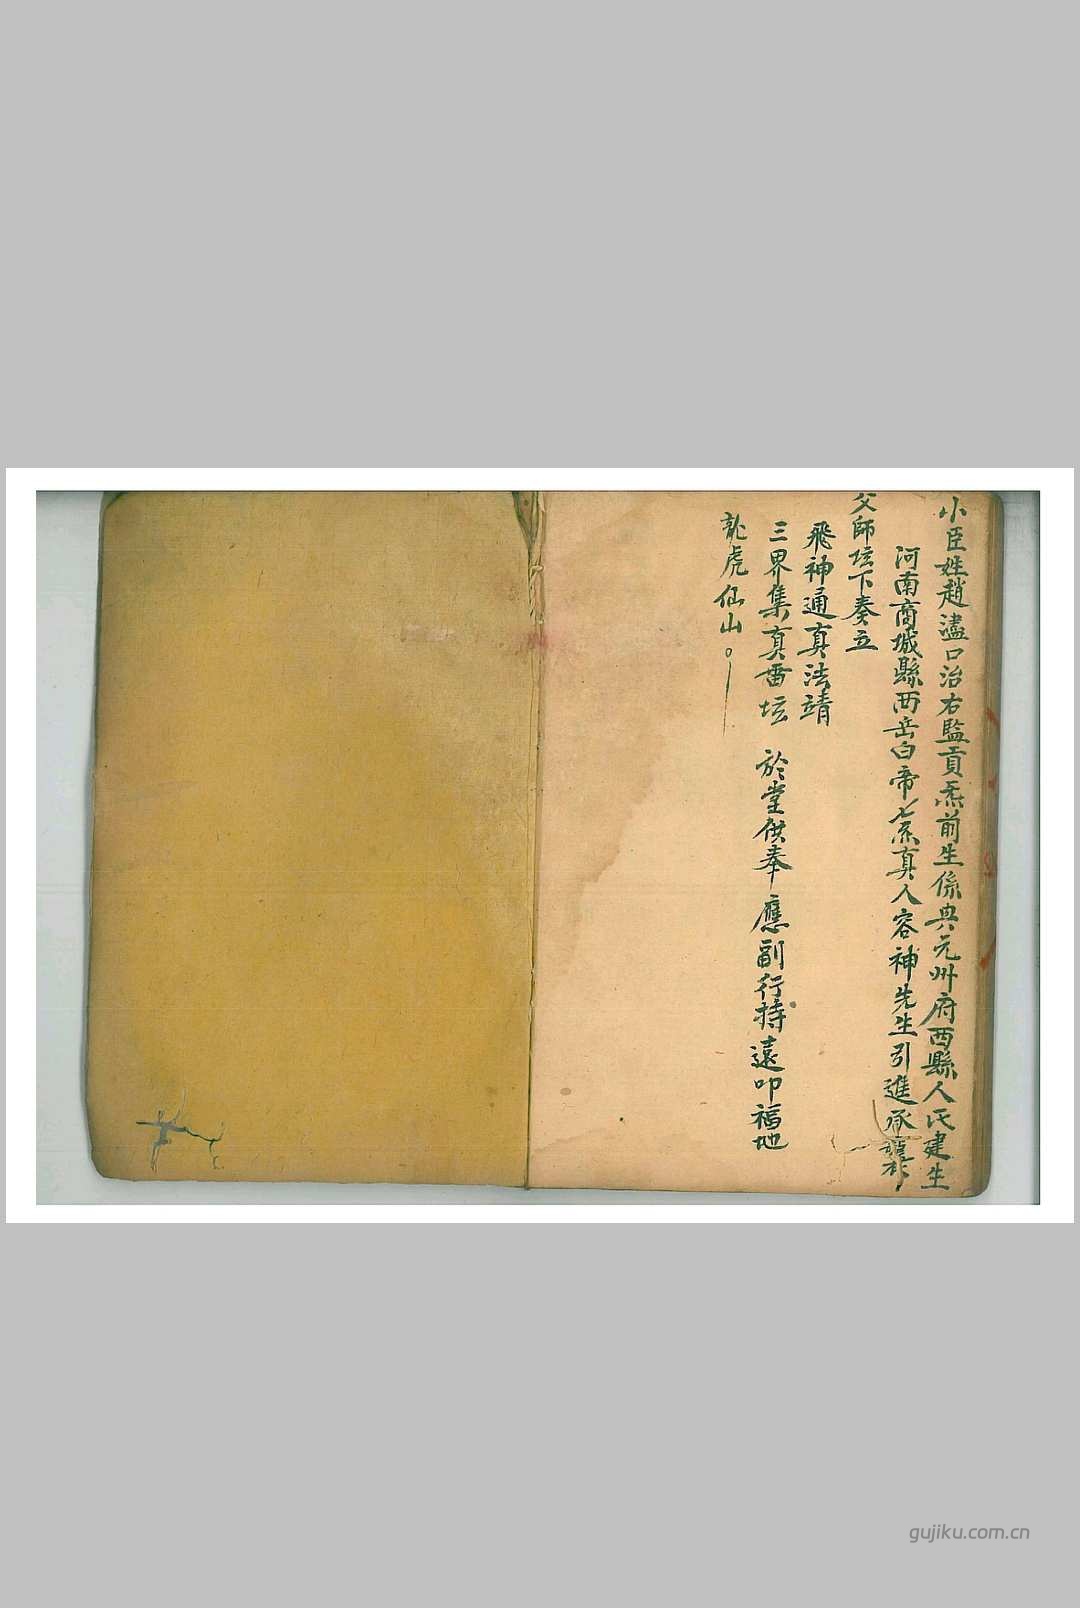 小臣姓趙濜口治右監貢炁前生係興元州府西縣人氏建生
河南商城縣西岳白帝七炁真人容神先生引進承
父師坛下奏立
飛神通真法靖
三界集真雷坛 於堂供奉 應副行持遠叩福地
龍虎仙山
gujiku.com.cn